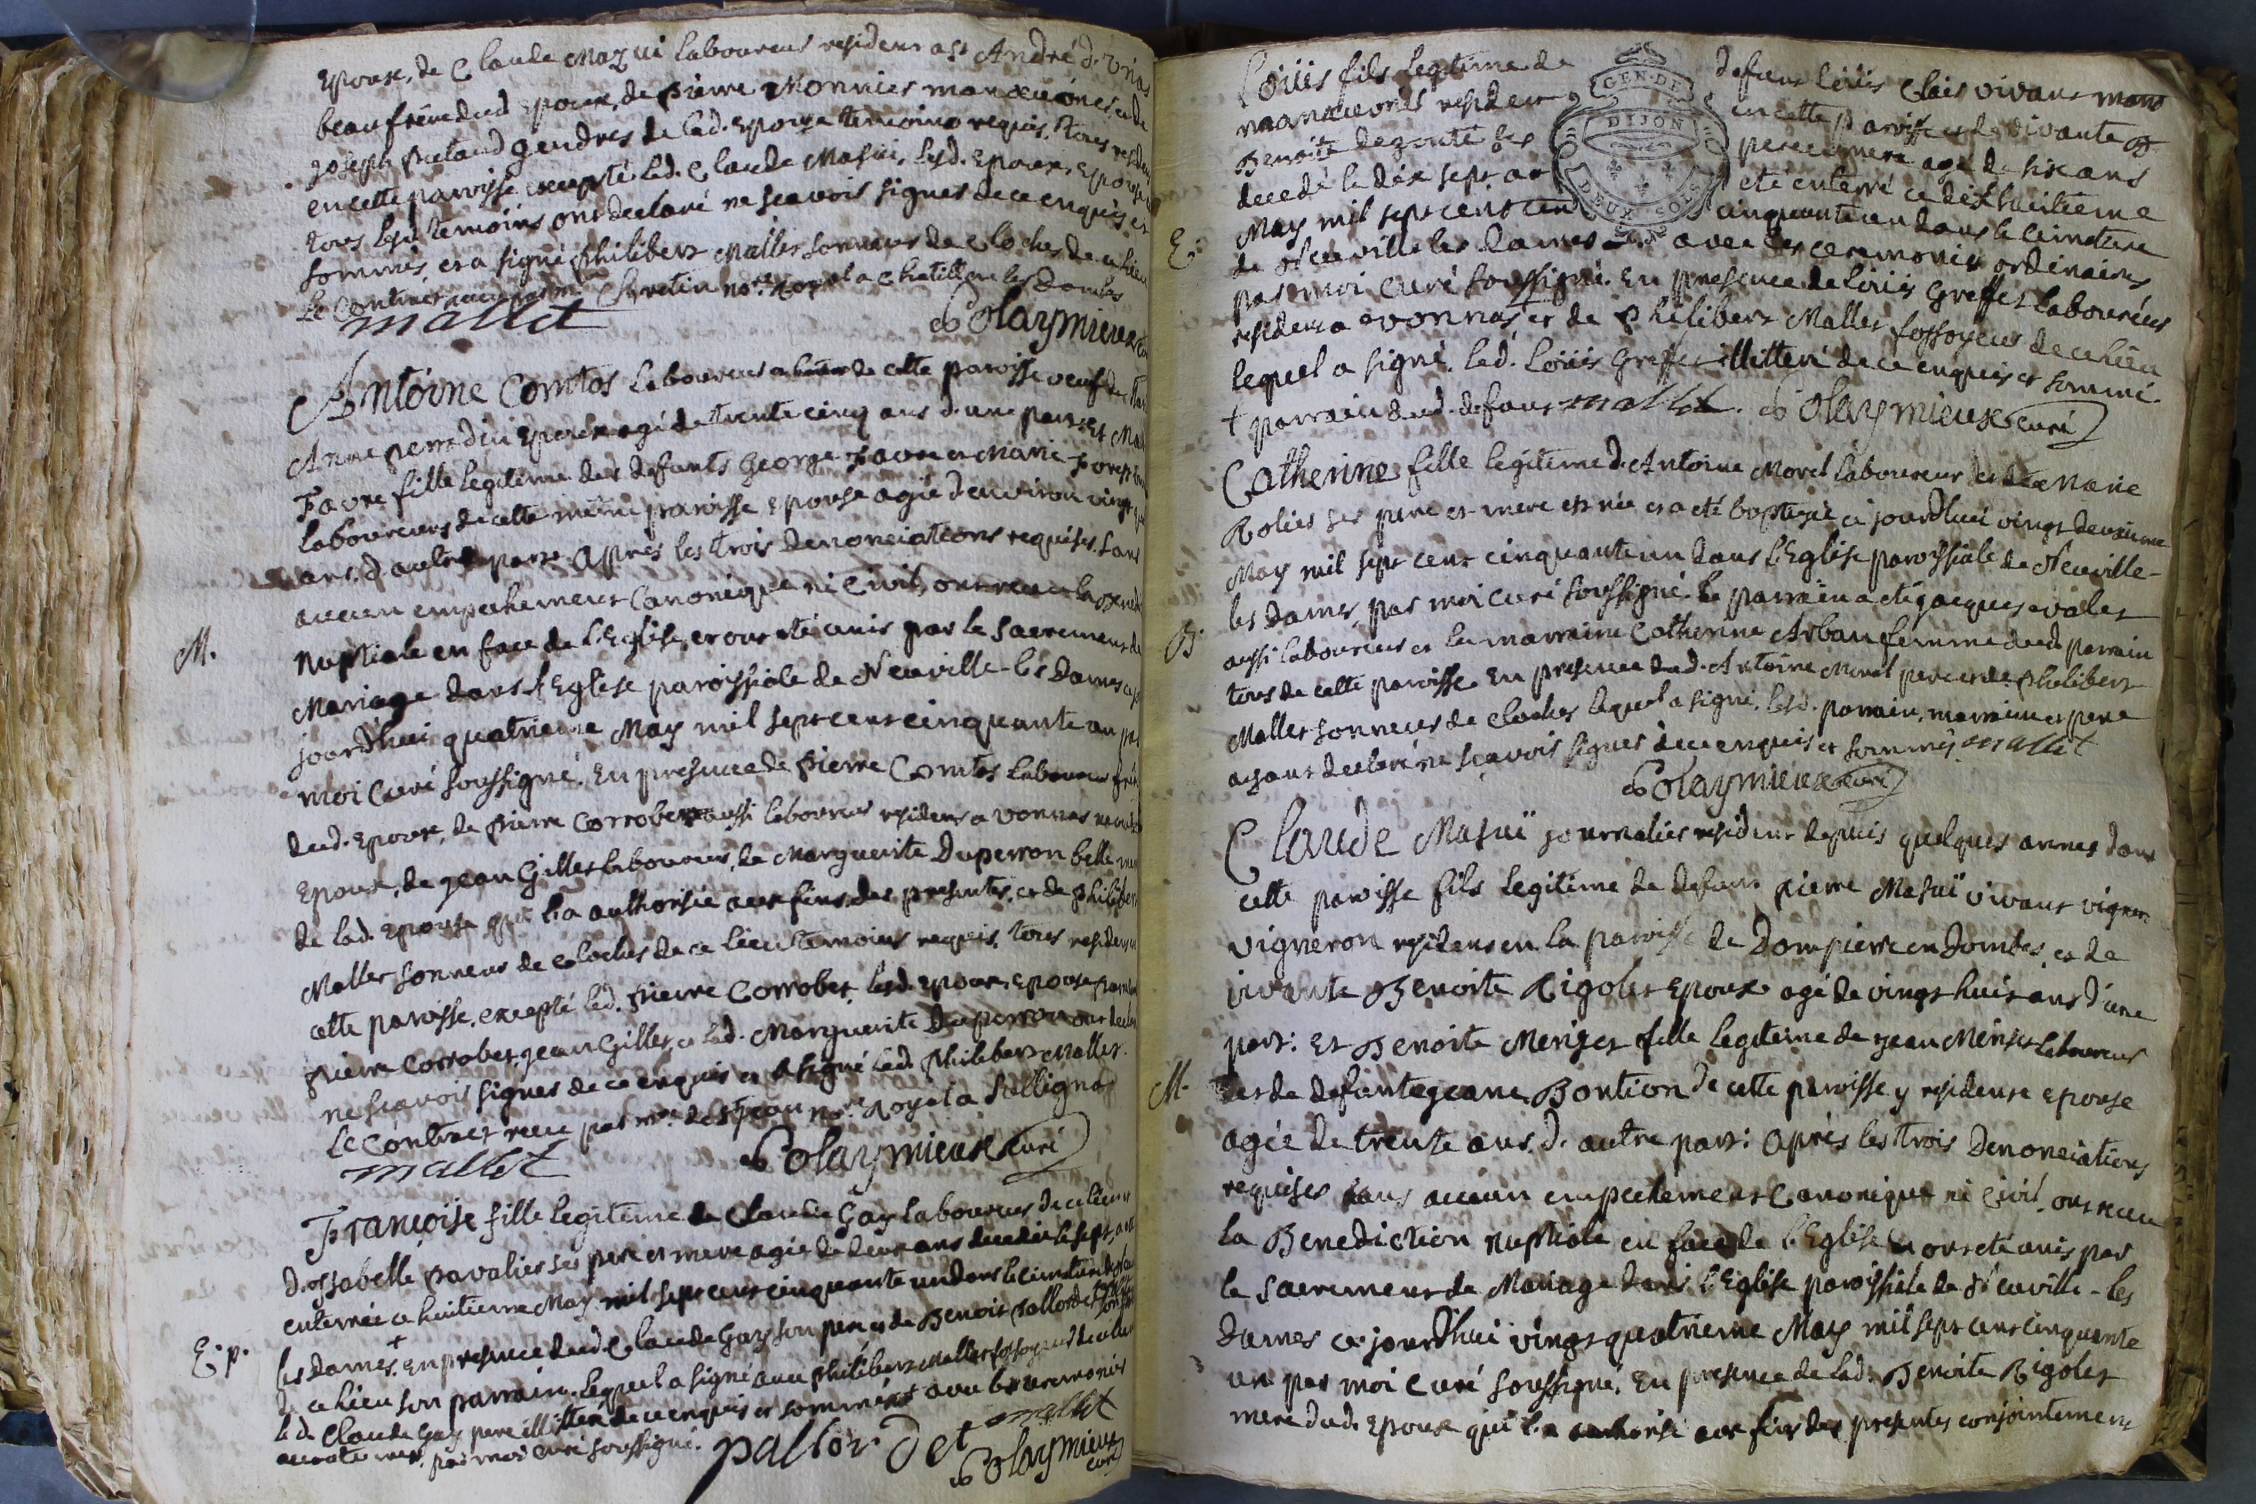 Epoux, de Claude Mazui laboureur resident a St André d.
beaufrere dud. Epoux, de pierre Monnier manoeuvres, et de
joseph gendres de lad. Epouse temoins requis, tous
en cette paroisse excepté led. Claude Masui, lesd. Epoux, Epouse
tous lesd. temoins ont declaré ne scavoir signer de ce enquis et
sommés, et a signé philibert Mallet sonneur de cloches de ce lieu
Le Contract Chretin no.re Royal a Chatillon les Dombes
mallet Colaymieux
Antoine Comtos laboureur de cette paroisse veuf de
Anne perradin Epoux agé de trente cinq ans d'une part. Et
Favre fille legitime des defunts George Favre et Marie
laboureurs de cette même paroisse Epouse agée d'environ vingt
ans, d'autre part. Après les trois Denonciations requises, sans
aucun empechement Canonique ni Civil, ont receu la
Nuptiale en face de l'Eglise, et ont été unis par le Sacrement de
Mariage dans l'Eglise paroissiale de Neuville-les Dames
jourd'hui quatrieme May mil sept cent cinquante un par
moi Curé soussigné. En presence de pierre Comtos laboureur
dud. Epoux, de pierre Corrobert aussi laboureur resident a vonnas
Epoux, de jean Gilles laboureur, de Marguerite Duperron belle
de lad. Epouse qui l'a authorisée aux fins des presentes, et de philibert
Mallet sonneur de cloches de ce lieu temoins requis, tous
cette paroisse, excepté led. pierre Corrobert, lesd. Epoux, Epouse,
pierre Corrobert, jean Gilles, et lad. Marguerite Duperron ont
ne scavoir signer de ce enquis et a signé led. philibert Mallet.
M.
Le Contract receu par m.re no.re Royal a
mallet Colaymieux curé
Francoise fille legitime de Claude Gay laboureur de ce lieu
d'ysabelle pavalier ses pere et mere agée de deux ans decedée le sept, a
enterrée ce huitieme May mil sept cent cinquante un dans le cimetiere
les Dames + En presence dud. Claude Gay son pere et de Benoit pallordet
E. p.
de ce lieu son parrain, lequel a signé avec philibert Mallet fossoyeur de ce lieu
led. Claude Gay pere illitteré de ce enquis et sommé + avec les ceremonies
par moi curé soussigné. pallordet mallet
Colaymieux curé
Loüis fils legitime de defunt Loüis Clair vivant
manoeuvres resident en cette paroisse et de vivante
Benoite ses pere et mere agé de six ans
decedé le dix sept, a eté enterré ce dix huitieme
May mil sept cent cinquante un dans le cimetiere
E.
de Neuville les Dames avec les ceremonies ordinaires
par moi Curé soussigné. En presence de Loüis Greffet laboureur
resident a vonnas + et de philibert Mallet fossoyeur de ce lieu
lequel a signé. led. Loüis Greffet illitteré de ce enquis et sommé.
+ parrain dud. defunt mallet. Colaymieux curé
GEN. DE
DIJON
DEUX SOLS
Catherine fille legitime d'Antoine Morel laboureur et de Marie
Rolier ses pere et mere est née et a eté baptizée ce jourd'hui vingt deuxieme
May mil sept cent cinquante un dans l'Eglise paroissiale de Neuville-
les Dames, par moi curé soussigné. le parrain a eté jacques
B.
aussi laboureur et la marraine Catherine Arban femme dud. parrain
tous de cette paroisse. En presence dud. Antoine Morel pere et de philibert
Mallet sonneur de cloches lequel a signé. lesd. parrain, marraine et pere
ayant declaré ne scavoir signer de ce enquis et sommés. mallet
Colaymieux curé
Claude Masuï journalier resident depuis quelques années dans
cette paroisse fils legitime de defunt pierre Masuï vivant vigneron
vigneron resident en la paroisse de Dompierre en Dombes, et de
vivante Benoite Rigolet Epoux agé de vingt huit ans d'une
part: Et Benoite Meriset fille legitime de jean Meriset laboureur
M.
et de defunte jeane Bontion de cette paroisse y residente epouse
agée de trente ans, d'autre part: Après les trois Denonciations
requises sans aucun empechement Canonique ni Civil, ont receu
la Benediction Nuptiale en face de l'Eglise et ont eté unis par
le Sacrement de Mariage dans l'Eglise paroissiale de Neuville-les
Dames ce jourd'hui vingt quatrieme May mil sept cent cinquante
un par moi Curé soussigné. En presence de lad. Benoite Rigolet
mere dud. Epoux qui l'a authorisé aux fins des presentes conjointement